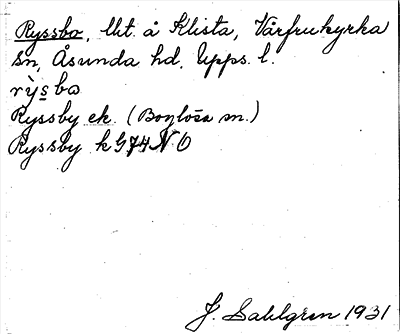 Ryssbo, llt. å Klista, Vårfrukyrka
sn, Åsunda hd, Upps. l.
rỳsbo
Ryssby ek. (Boglösa sn.)
Ryssby k G74 NO
J. Sahlgren 1931